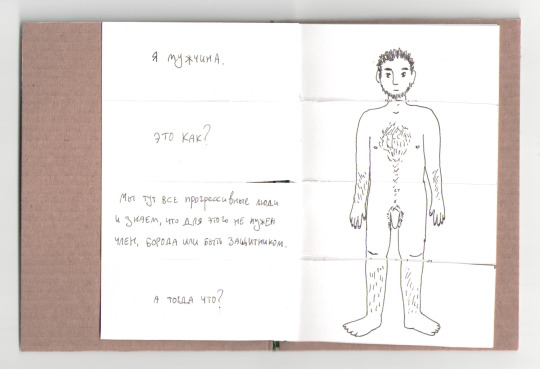 Я МУЖЧИНА.
ЭТО КАК?
Мы тут все прогрессивные люди
и знаем, что для этого не нужен
член, борода или быть защитником.
А тогда что?